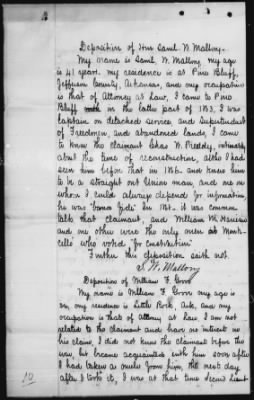 Deposition of Hon Saml. W. Mallory.
My name is Saml. W. Mallory, my age
is 41 years. my residence is at Pine Bluff,
Jefferson County, Arkansas, and my occupation
is that of Attorney at Law, I came to Pine
Bluff in the latter part of 1863. I was
captain on detached service and Superintendent
of Freedmen, and abandoned lands, I came
to know the claimant Chas W. Preddy, intimately
about the time of reconstruction, altho I had
seen him before that in 1864. and knew him
to be a straight out Union man, and one on
whom I could always depend for information,
he was "bona fide" in 186 . it was common
talk that claimant, and William M. Harrison
and one other were the only men at Monti-
cello who voted "for Constitution"
Further this deposition saith not.
S. W. Mallory
Deposition of William F. Grove
My name is William F. Grove my age is
my residence is Little Rock, Ark, and my
occupation is that of attorney at law. I am not
related to the claimant and have no interest in
his claim, I did not know the claimant before the
war, but became acquainted with him soon after
I had taken
the next day
after I took it, I was at that time Second Lieut
10